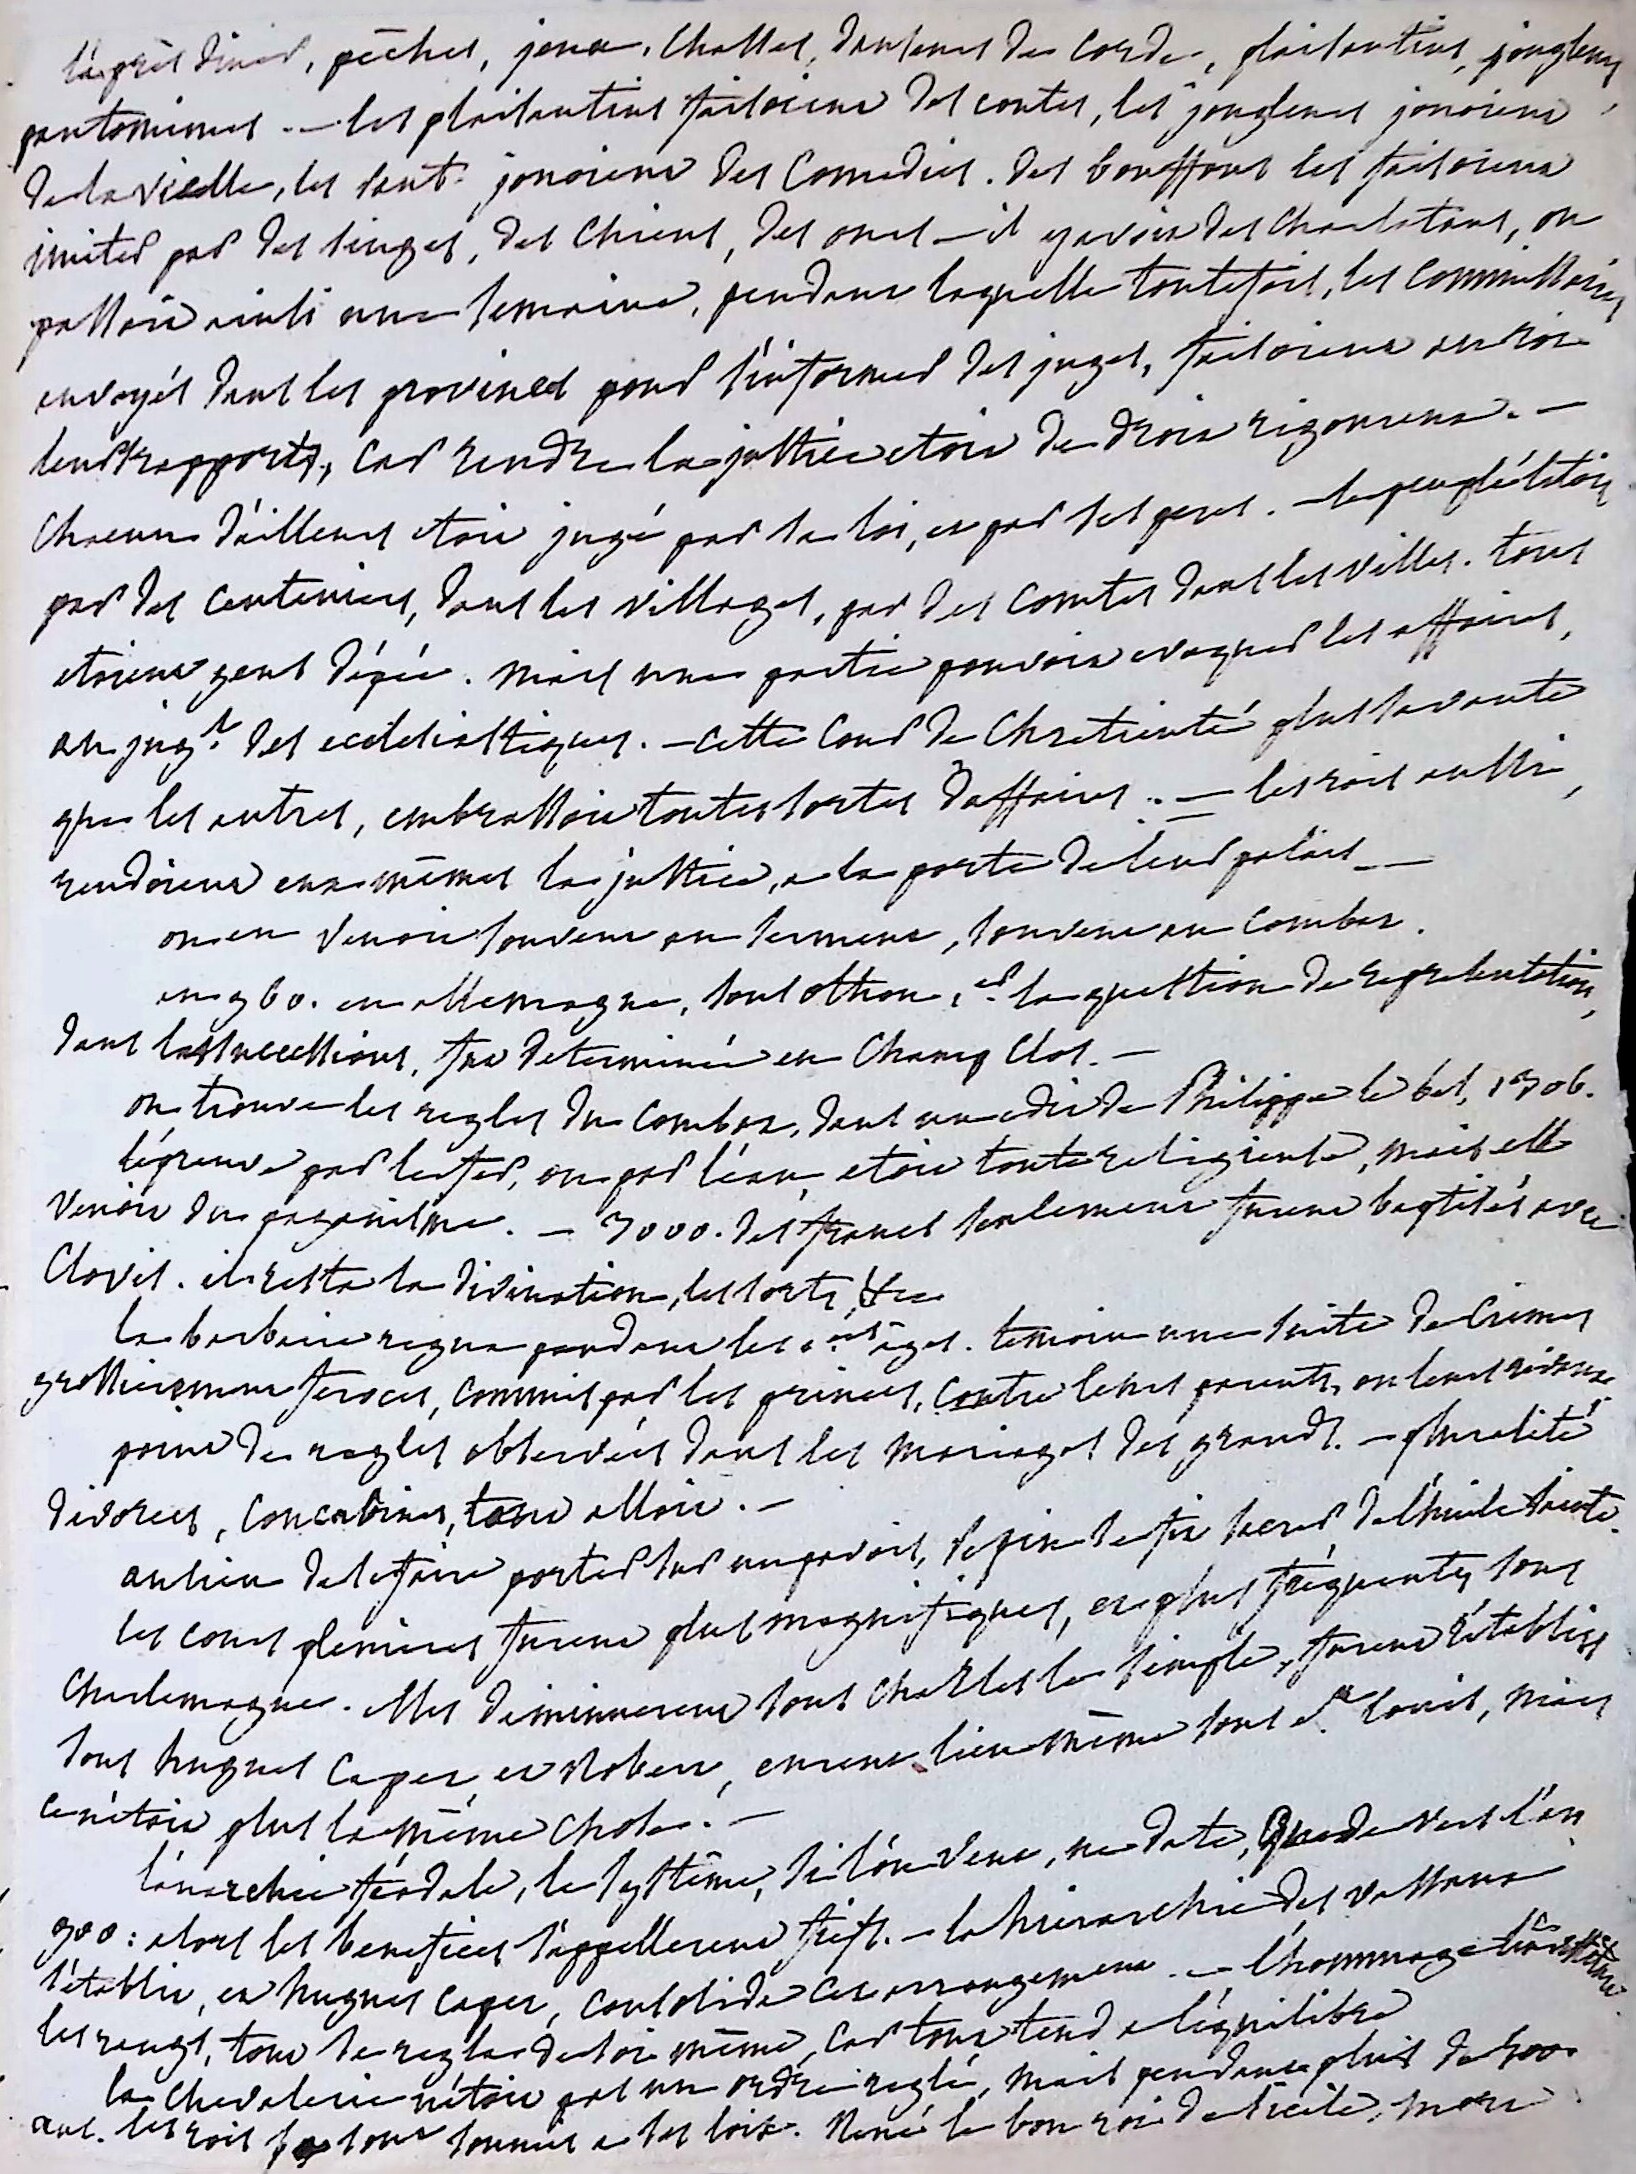 l'après diner, pêches, jeux, chasses, danseurs de corde, plaisantins, jongleurs,
pantomimes. — les plaisantins faisoient des contes, les jongleurs jouoient
de la vielle, les pant. jouoient des comedies. des bouffons les faisoient
imiter par des singes, des chiens, des ours — il y avoit des charlatans, on
passoit ainsi une semaine, pendant laquelle toutefois, les commissaires
envoyés dans les provinces pour s'informer des juges, faisoient au roi
leur rapports, car rendre la justice etoit de droit rigoureux. —
chacun d'ailleurs etoit jugé par sa loi, et par ses pairs. — le peuple l'etoit
par des centeniers, dans les villages, par des comtes dans les villes. tous
etoient gens d'épée. mais une partie pouvoit evoquer les affaires,
au jugt. des ecclesiastiques. — cette cour de chretienté plus savante
que les autres, embrassoit toutes sortes d'affaires. — les rois aussi,
rendoient eux mêmes la justice, a la porte de leur palais —
on en venoit souvent au serment, souvent au combat.
en 960. en allemagne, sous othon, 1er. la question de representation,
dans les successions, fut determinée en champ clos. —
on trouve les regles du combat, dans un edit de Philippe le bel, 1306.
l'épreuve par le fer, ou par l'eau, etoit toute religieuse, mais elle
venoit du paganisme. — 3000. des francs seulement furent baptisés avec
Clovis. il resta la divination, les sorts, &ca
la barbarie regna pendant les 1ers âges. temoin une suite de crimes
grossierement feroces, commis par les princes, contre leurs parents, ou leurs
point de regles observées dans les mariages des grands. — pluralité
divorces, concubines, tout alloit. —
au lieu de se faire porter sur un pavois, Pepin se fit sacrer de l'huile sainte.
les cours plenieres furent plus magnifiques, et plus fréquentes sous
Charlemagne. elles diminuerent sous Charles le simple, furent rétablies
sous hugues Capet, et Robert, eurent lieu même sous St. Louis, mais
ce n'étoit plus la même chose. —
l'anarchie féodale, le systême, si l'on veut, ne date, que de vers l'an
900 : alors les benefices s'appellerent fiefs. — la hierarchie des vassaux
s'établit, et hugues capet, consolida cet arrangement. — l'hommage
les rangs, tout se regla de soi même, car tout tend a l'équilibre
la chevalerie n'étoit pas un ordre reglé, mais pendant plus de 500
ans. les rois se sont soumis a ses loix. René le bon roi de sicile, mort